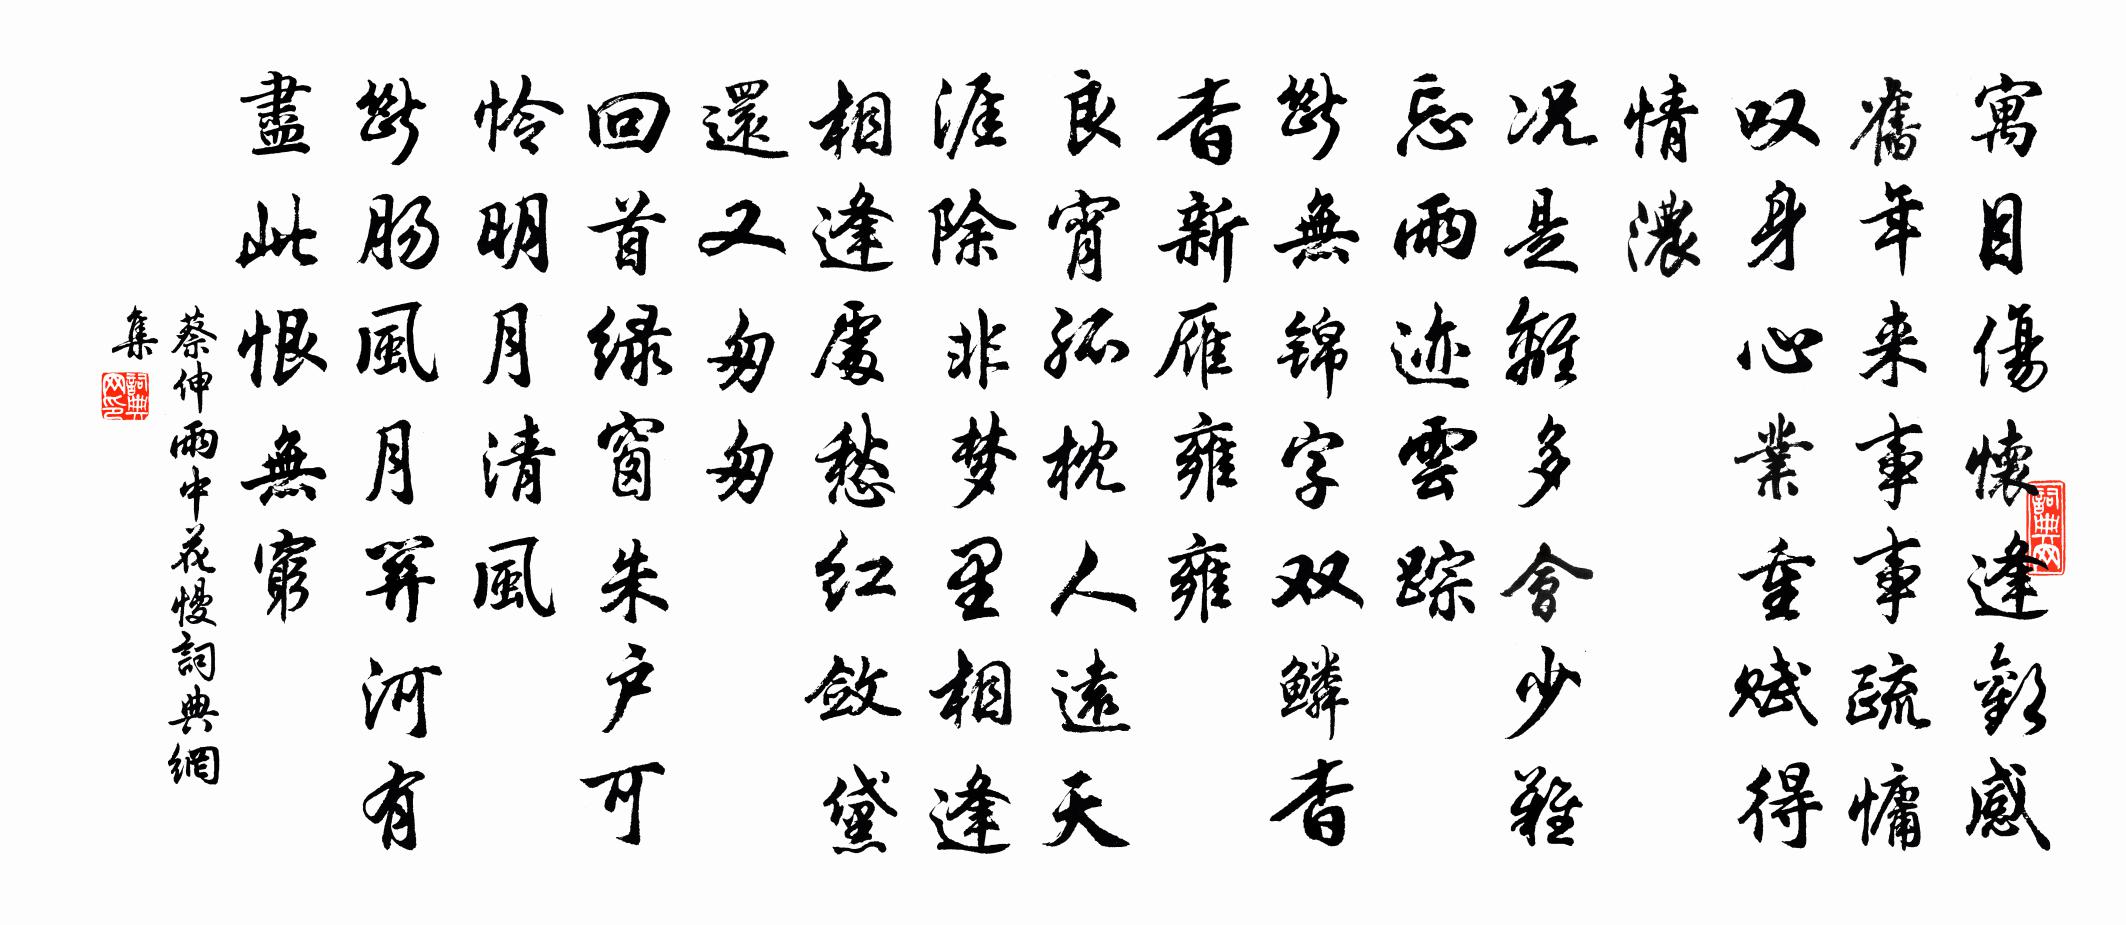 寓目傷懷逢歡感
舊年来事事疏慵
叹身心業重賦得
情濃
况是離多會少難
忘雨迹雲踪
斷無锦字双鳞杳
杳新雁雍雍
良宵孤枕人遠天
涯除非梦里相逢
相逢處愁红敛黛
還又匆匆
回首绿窗朱户可
怜明月清風
斷肠風月關河有
盡此恨無窮
蔡伸雨中花慢詞典網
集
詞典网
詞典网印